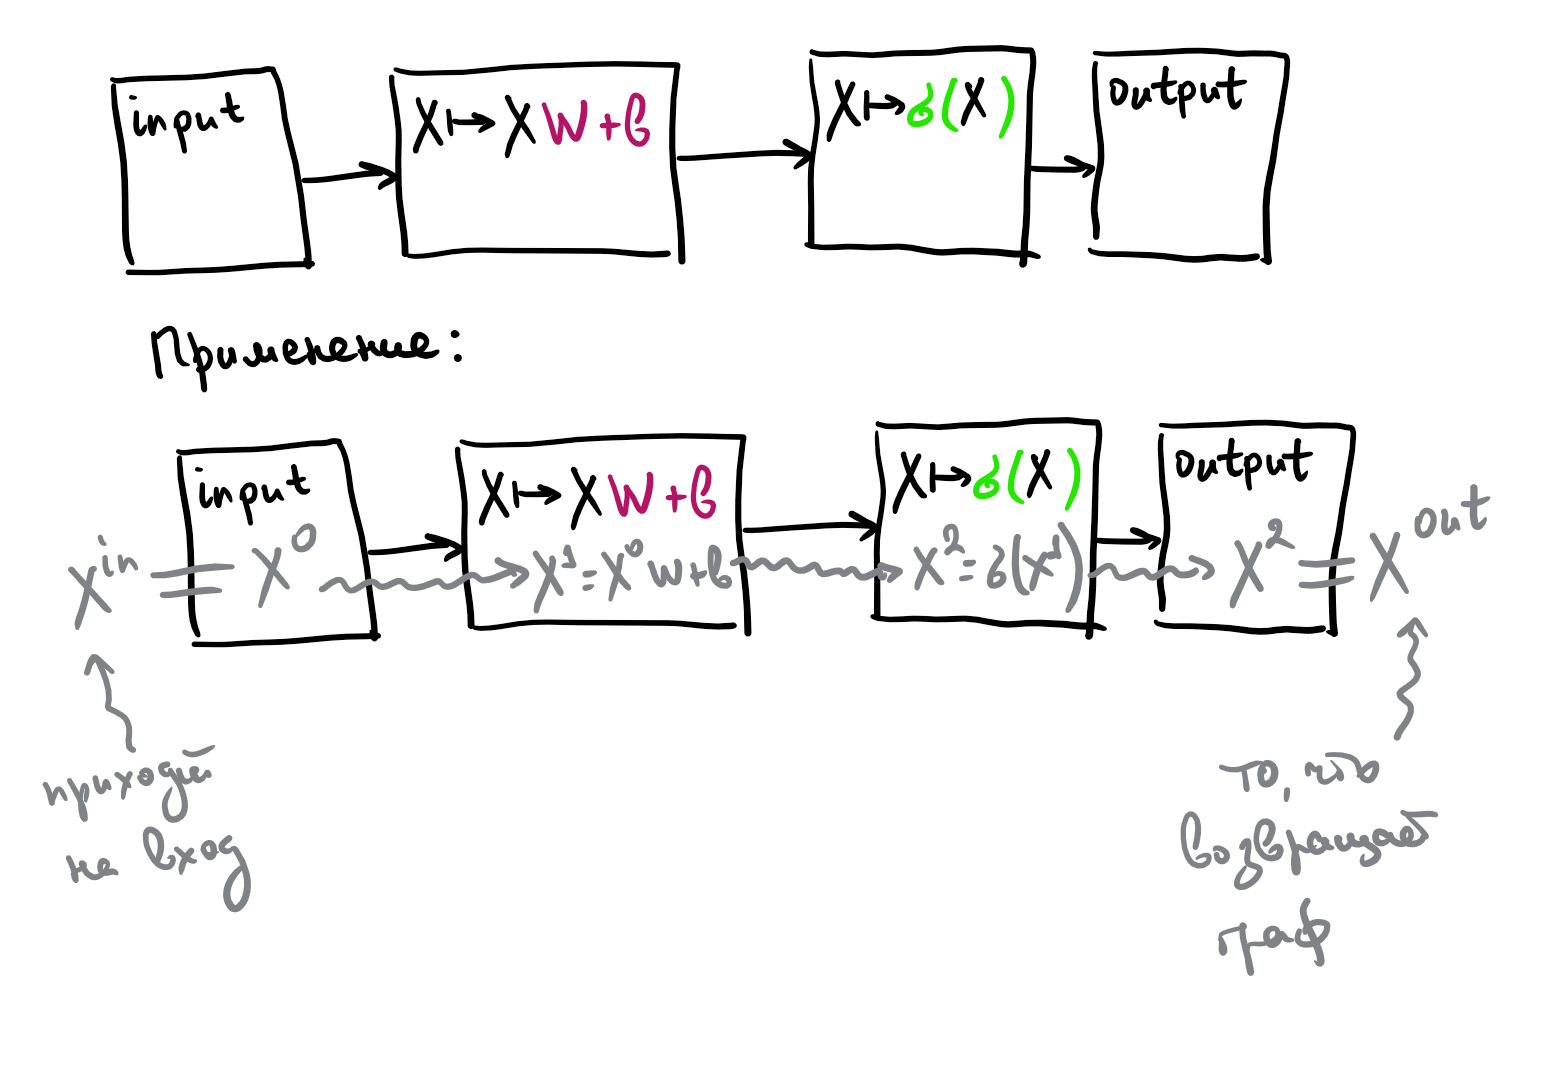 input X ↦ XW+b X ↦ σ(X) output
Применение:
input X ↦ XW+b X ↦ σ(X) output
X^in = X^0 X^1 = X^0 W+b X^2 = σ(X^1) X^2 = X^out
приходит
на вход
то, что
возвращает
граф